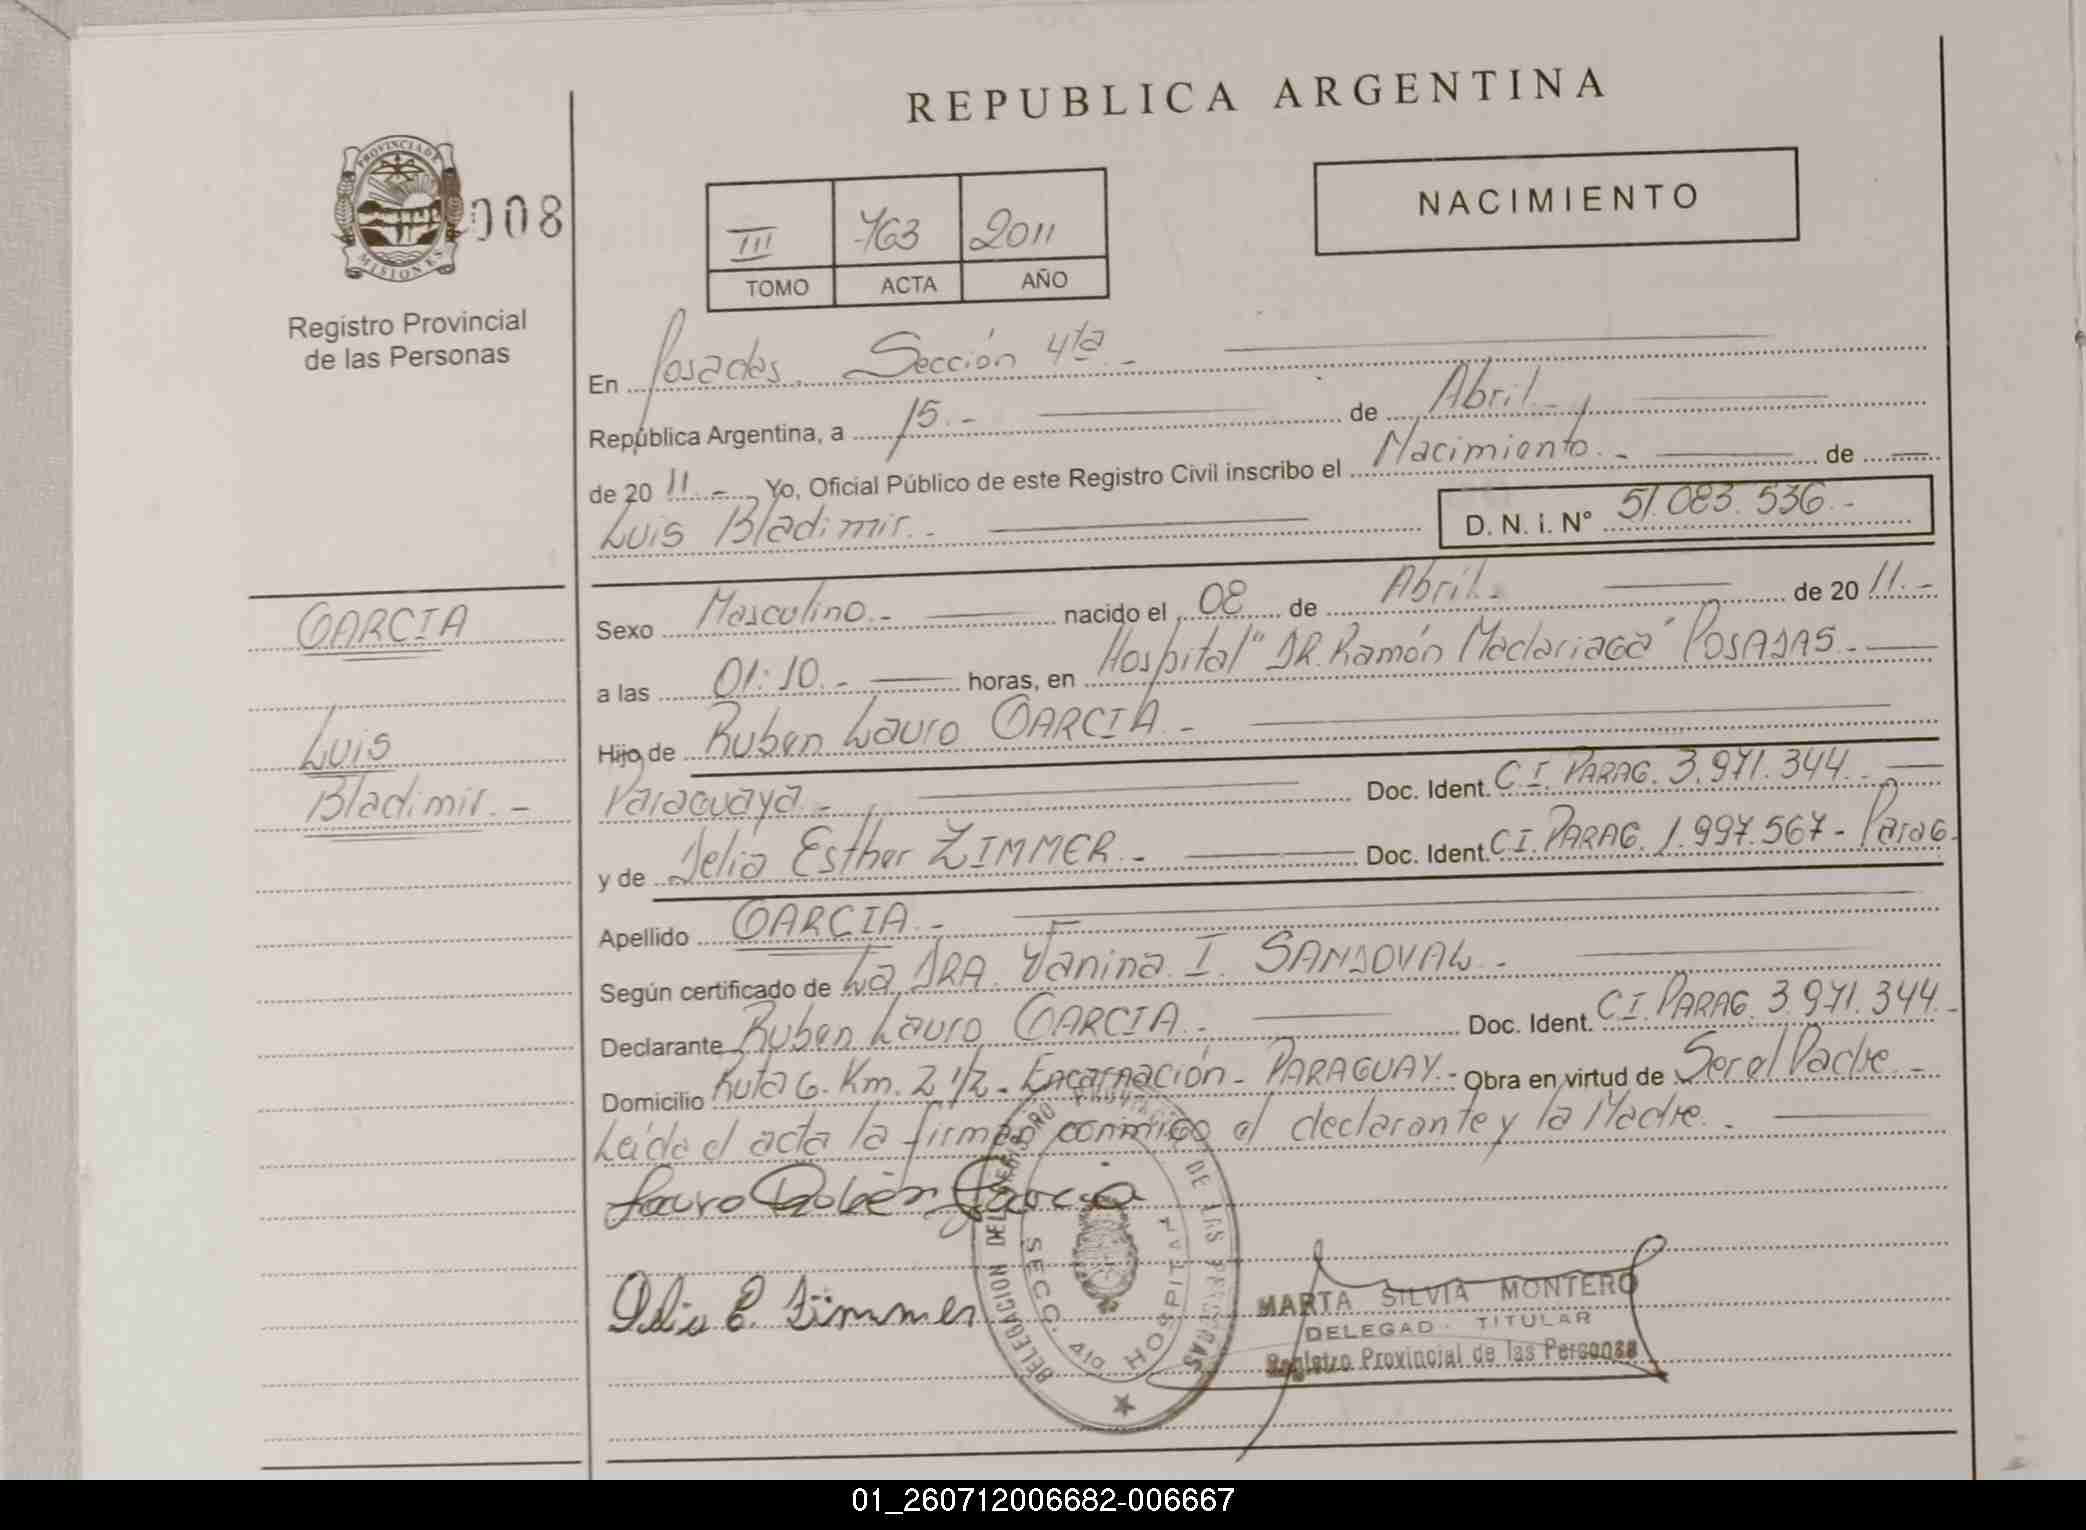 REPUBLICA ARGENTINA
PROVINCIA DE
MISIONES
008
Registro Provincial
de las Personas
III 763 2011
TOMO ACTA AÑO
NACIMIENTO
En Posadas. Sección 4ta.-
República Argentina, a 15.- de Abril.-
de 20 11.-, Yo, Oficial Público de este Registro Civil inscribo el Nacimiento.- de
Luis Bladimir.- D. N. I. N° 51.083.536.-
GARCIA
Luis
Bladimir.-
Sexo Masculino.- nacido el 08 de Abril.- de 20 11.-
a las 01:10.- horas, en Hospital "DR. Ramón Madariaga" POSADAS.-
Hijo de Ruben Lauro GARCIA.-
Paraguaya.- Doc. Ident. C.I. PARAG. 3.971.344.-
y de Delia Esther ZIMMER.- Doc. Ident. C.I. PARAG. 1.997.567- Parag.
Apellido GARCIA.-
Según certificado de La DRA. Yanina I. SANDOVAL.-
Declarante Ruben Lauro GARCIA.- Doc. Ident. C.I. PARAG. 3.971.344.-
Domicilio Ruta 6. Km. 2 1/2- Encarnación- PARAGUAY.- Obra en virtud de Ser el Padre.-
Leída el acta la firman conmigo el declarante y la Madre.-
Lauro Rubén Garcia
Delia E. Zimmer
DELEGACION DEL REGISTRO PROVINCIAL DE LAS PERSONAS
SECC. 4ta. HOSPITAL
MARTA SILVIA MONTERO
DELEGAD TITULAR
Registro Provincial de las Personas
01_260712006682-006667